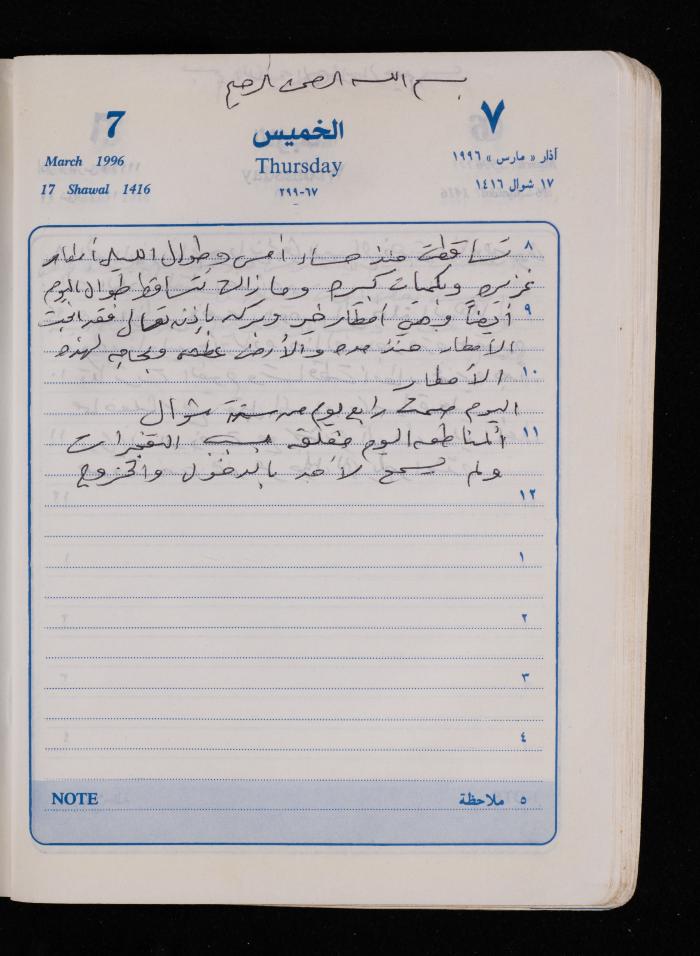 بسم الله الرحمن الرحيم
7
الخميس
٧
March 1996
Thursday
آذار « مارس » ١٩٩٦
17 Shawal 1416
٦٧-٢٩٩
١٧ شوال ١٤١٦
٨ تساقطت منذ مساء أمس وطوال الليل أمطار
غزيره وبكميات كبيره وما زالت تتساقط طوال اليوم
٩ أيضاً وهي أمطار خير وبركه بإذن تعالى فقد
الأمطار منذ مده والأرض عطشه وبحاجه لهذه
١٠ الأمطار
اليوم صمت رابع يوم من ستة شوال
١١ المناطق اليوم مغلقه بسبب التفجيرات
ولم يسمح لأحد بالدخول والخروج
١٢
١
٢
٣
٤
NOTE
٥ ملاحظة